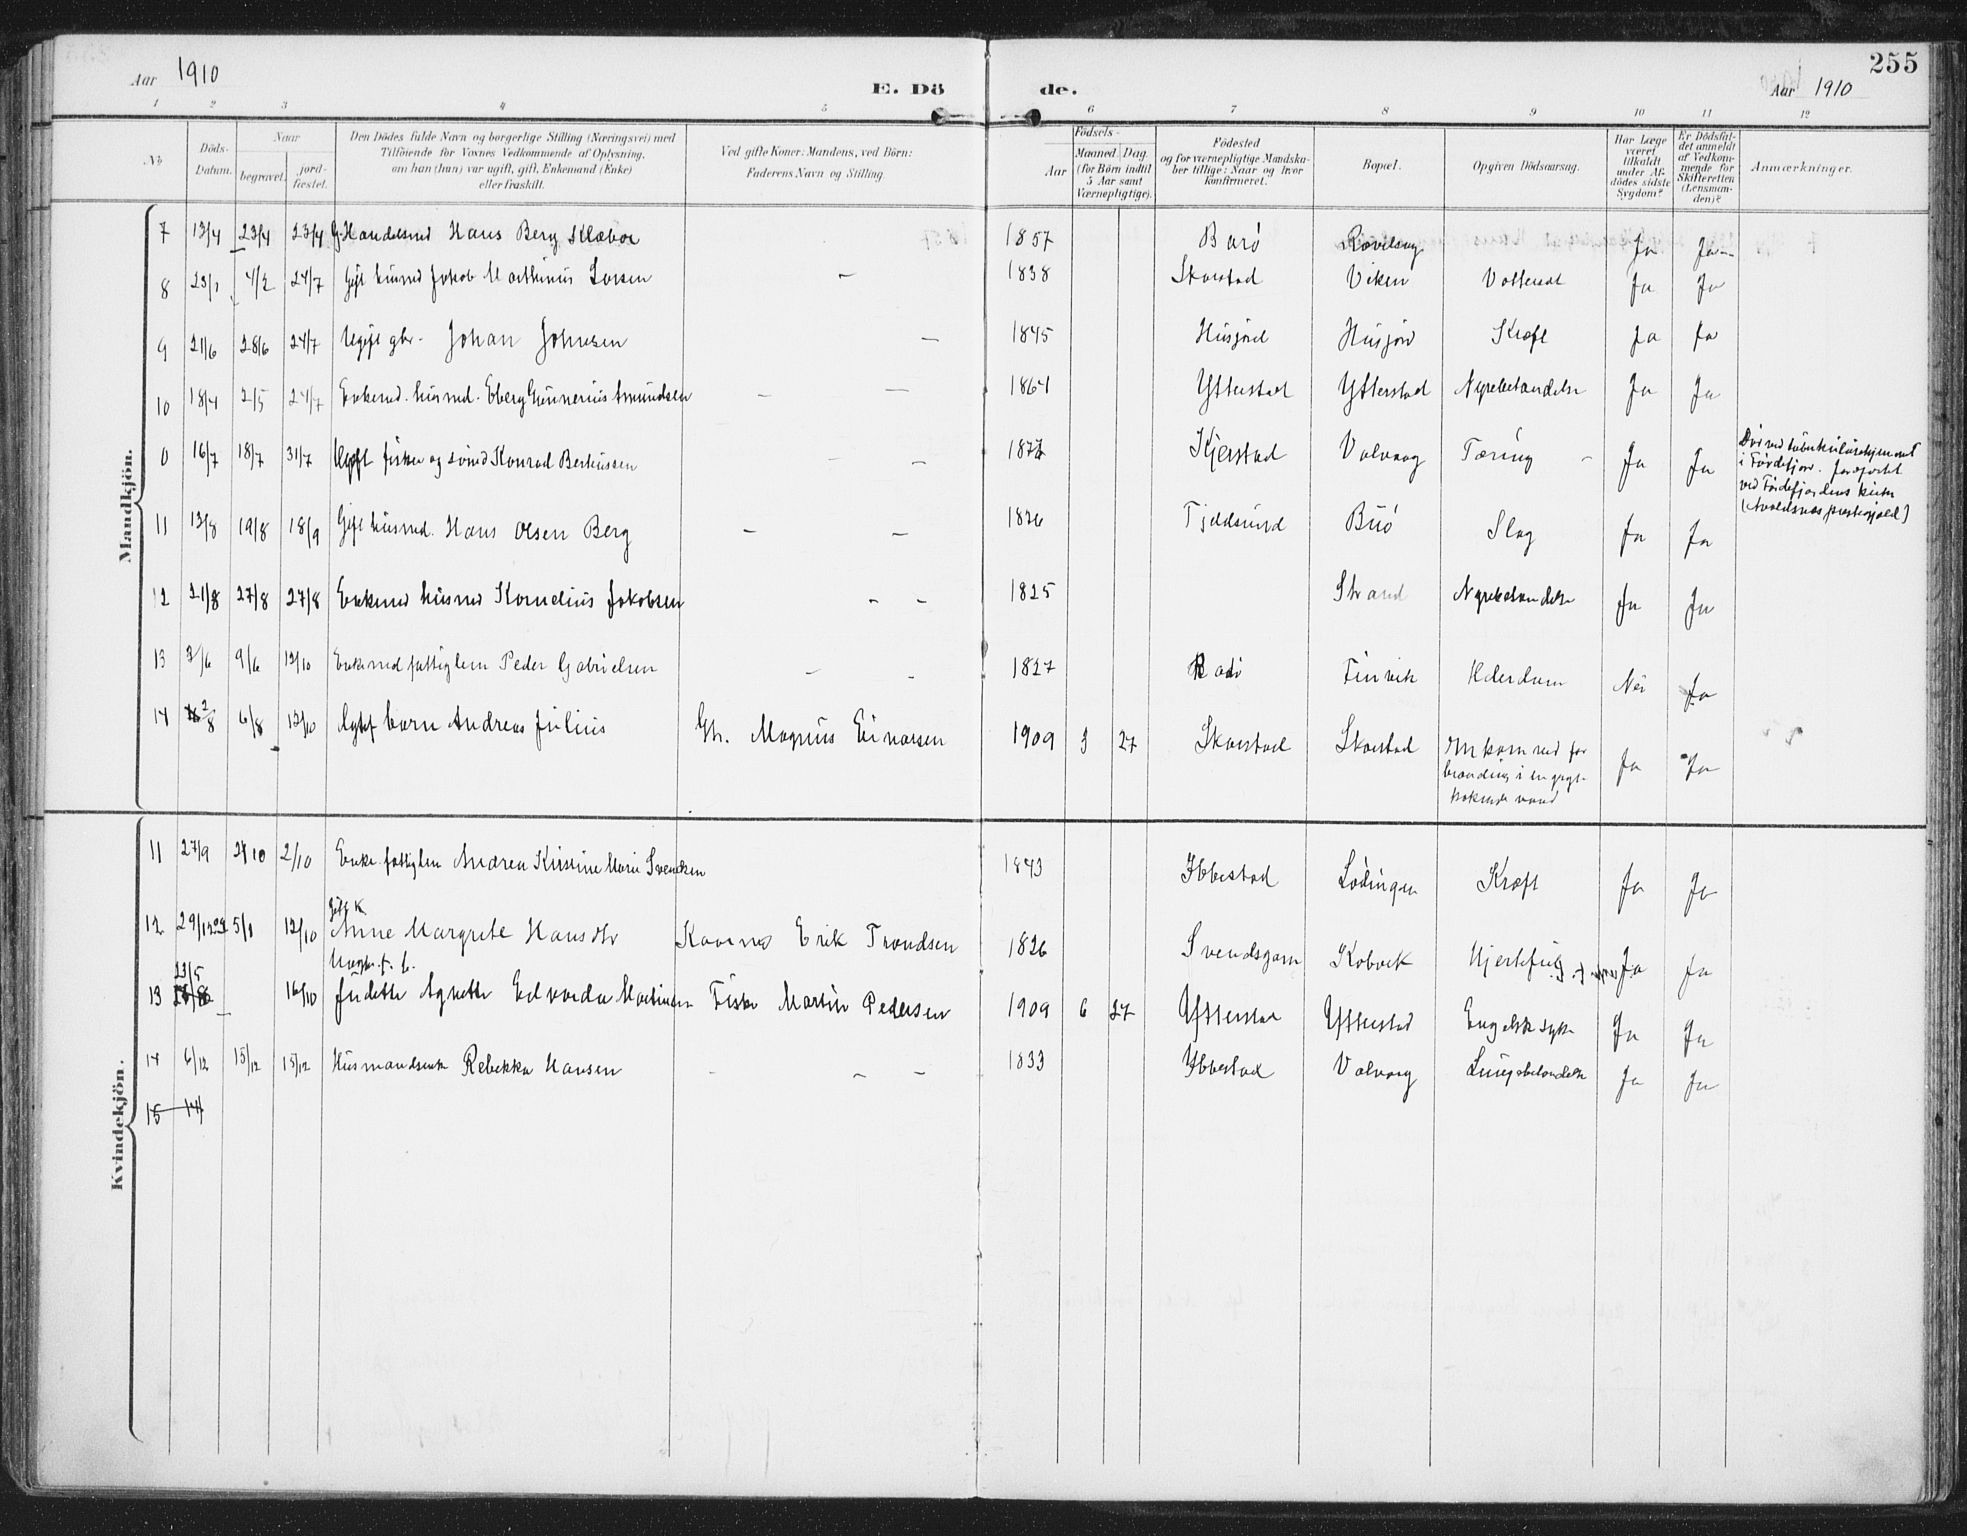 255
Aar 1910
E. Dö
de.
Aar 1910
1 2 3 4 5 6 7 8 9 10 11 12
No
Döds-
Datum.
Naar
begravet.
jord-
fæstet.
Den Dödes fulde Navn og borgerlige Stilling (Næringsvei) med
Tilföiende for Voxnes Vedkommende af Oplysning,
om han (hun) var ugift, gift, Enkemand (Enke)
eller fraskilt.
Ved gifte Koner: Mandens, ved Börn:
Faderens Navn og Stilling.
Födsels-
Aar
Maaned. Dag.
(for Børn indtil
5 Aar samt
Værnepligtige).
Födested
og for værnepligtige Mandska-
ber tillige: Naar og hvor
konfirmeret.
Bopæl.
Opgiven Dödsaarsag.
Har Læge
været
tilkaldt
under Af-
dödes sidste
Sygdom?
Er Dödsfal-
det anmeldt
af Vedkom-
mende for
Skifteretten
(Lensman-
den)?
Anmærkninger.
Mandkjön.
7 13/4 23/4 23/4 G. Handelsmd Hans Berg Klæboe 1857 Barö Ja Ja
8 23/1 4/2 24/7 Gift husmd Jakob Marthinus Larsen — 1838 Skarstad Viken Vattersot Ja Ja
9 21/6 28/6 24/7 Ugift gbr. Johan Johnsen — 1845 Husjord Husjord Kræft Ja Ja
10 18/4 2/5 24/7 Enkemd. husmd. Eberg Gunnerius Amundsen — — 1864 Ytterstad Ytterstad Nyrebetændelse Ja Ja
0 16/7 18/7 31/7 Ugift fisker og Konrad Berthussen — — 1877 Kjerstad Valvaag Tæring — Ja Ja
Död ved tuberkulosehjemmet
i Fördefjor. Jordfæstet
ved Fördefjordens kirke
(Avaldsnes præstegjæld)
11 13/8 19/8 18/9 Gift husmd. Hans Olsen Berg — — 1826 Tjeldsund Buö Slag Ja Ja
12 21/8 27/8 27/8 Enkemd husmd Kornelius Jakobsen — — 1825 Strand Nyrebetændelse Ja Ja
13 3/6 9/6 12/10 Enkemd fattiglem Peder Gabrielsen — — 1827 Finvik Alderdom Nei Ja
14 2/8 6/8 12/10 barn Andreas Julius Gbr. Magnus Einarsen 1909 3 27 Skarstad Skarstad Omkom ved for
brænding i en gryte
kokende vand
Ja Ja
Kvindekjön.
11 27/9 2/10 2/10 Enke fattiglem Andrea Kirstine Marie Svendsen 1843 Ibbestad Lödingen Kræft Ja Ja
Gift K
12 29/12 09 5/1 12/10 Anne Margrete Hansdtr Kaarmd Erik Trondsen 1826 Svendsgam Kobvik Hjertefeil Ja Ja
23/5
13 16/10 Judette Agnette Edvarda Martinsen Fisker Martin Pedersen 1909 6 27 Ytterstad Ytterstad Engelsk syke Ja Ja
14 6/12 15/12 15/12 Husmandsenke Rebekka Hansen — — — 1833 Ibbestad Valvaag Lungebetændelse Ja Ja
15 14